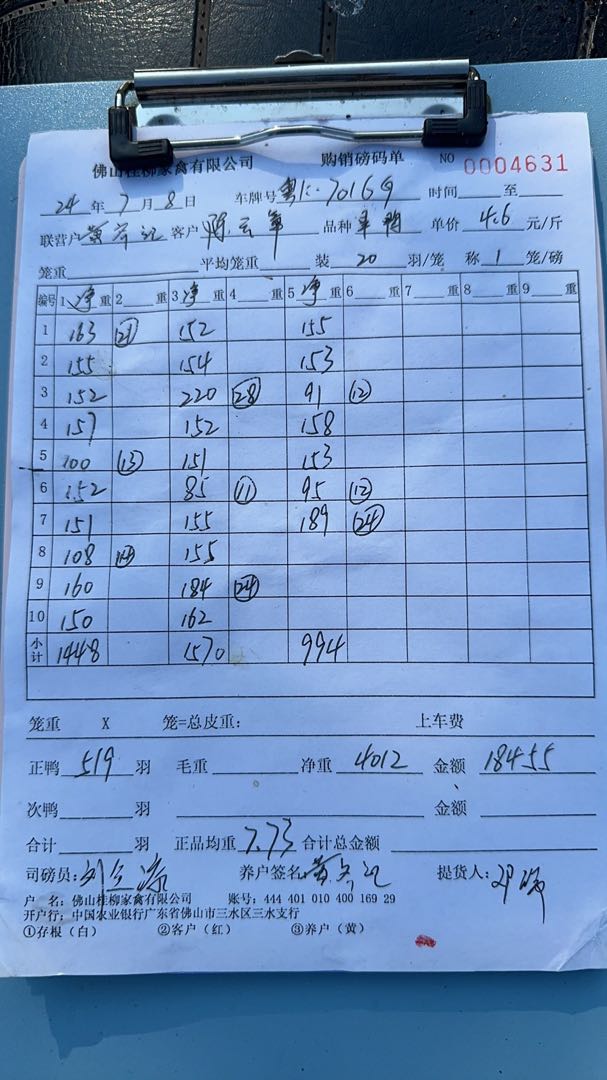 佛山桂柳家禽有限公司 购销磅码单 NO 0004631
24 年 7 月 8 日 车牌号 粤K·7016G 时间 至
联营户 客户 陈云 品种 鸭 单价 4.6 元/斤
笼重 平均笼重 装 20 羽/笼 称 1 笼/磅
编号 1 净 重 2 重 3 净 重 4 重 5 净 重 6 重 7 重 8 重 9 重
1 163 21 152 155
2 155 154 153
3 152 220 28 91 12
4 157 152 158
5 100 13 151 153
6 152 85 11 95 12
7 151 155 189 24
8 108 14 155
9 160 184 24
10 150 162
小计 1448 1570 994
笼重 X 笼=总皮重： 上车费
正鸭 519 羽 毛重 净重 4012 金额 18455
次鸭 羽 金额
合计 羽 正品均重 7.73 合计总金额
司磅员： 刘 养户签名 提货人：
户 名：佛山桂柳家禽有限公司 账号：444 401 010 400 169 29
开户行：中国农业银行广东省佛山市三水区三水支行
①存根（白） ②客户（红） ③养户（黄）